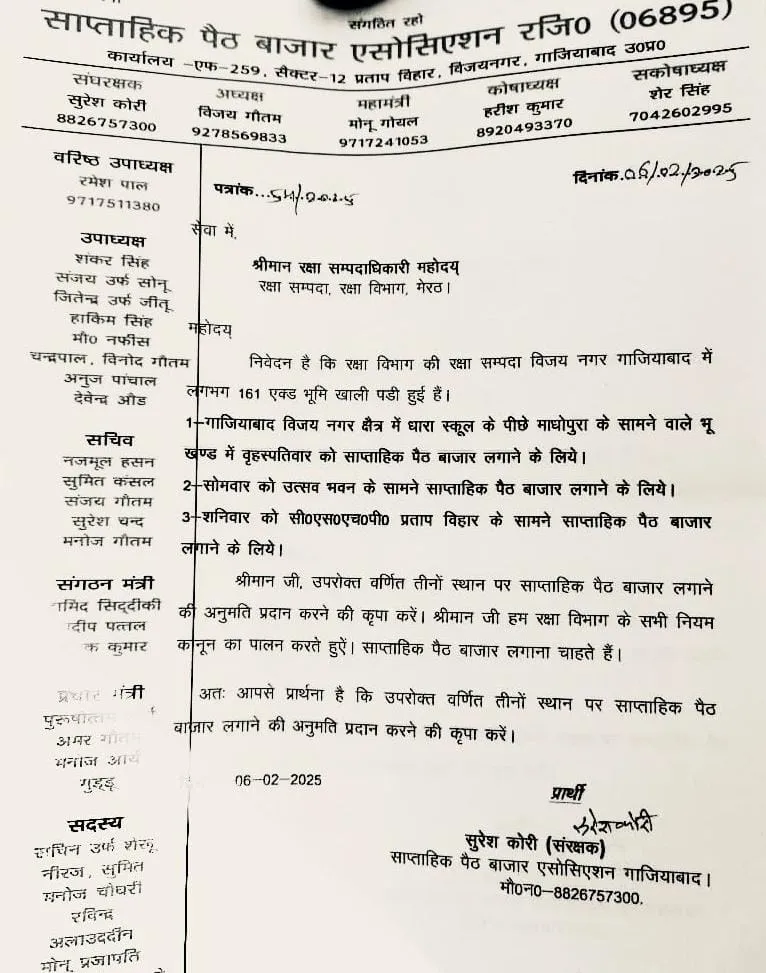 संगठित रहो
साप्ताहिक पैठ बाजार एसोसिएशन रजि0 (06895)
कार्यालय -एफ-259, सैक्टर-12 प्रताप विहार, विजयनगर, गाजियाबाद उ0प्र0
संघरक्षक
सुरेश कोरी
8826757300
अध्यक्ष
विजय गौतम
9278569833
महामंत्री
मोनू गोयल
9717241053
कोषाध्यक्ष
हरीश कुमार
8920493370
सकोषाध्यक्ष
शेर सिंह
7042602995
वरिष्ठ उपाध्यक्ष
रमेश पाल
9717511380
उपाध्यक्ष
शंकर सिंह
संजय उर्फ सोनू
जितेन्द्र उर्फ जीतू
हाकिम सिंह
मौ0 नफीस
चन्द्रपाल, विनोद गौतम
अनुज पांचाल
देवेन्द्र औड
सचिव
नजमूल हसन
सुमित कंसल
संजय गौतम
सुरेश चन्द
मनोज गौतम
संगठन मंत्री
सिद्दीकी
पत्तल
कुमार
प्रचार मंत्री
अमर
मनोज आर्य
गुड्डू
सदस्य
सचिन उर्फ शेरू
नीरज, सुमित
मनोज चौधरी
रविन्द्र
अलाउददीन
मोनू प्रजापति
पत्रांक...54/2025
दिनांक.06/02/2025
सेवा में,
श्रीमान रक्षा सम्पदाधिकारी महोदय्
रक्षा सम्पदा, रक्षा विभाग, मेरठ।
महोदय्
निवेदन है कि रक्षा विभाग की रक्षा सम्पदा विजय नगर गाजियाबाद में
लगभग 161 एक्ड भूमि खाली पडी हुई हैं।
1–गाजियाबाद विजय नगर क्षैत्र में धारा स्कूल के पीछे माधोपुरा के सामने वाले भू
खण्ड में वृहस्पतिवार को साप्ताहिक पैठ बाजार लगाने के लिये।
2–सोमवार को उत्सव भवन के सामने साप्ताहिक पैठ बाजार लगाने के लिये।
3–शनिवार को सी0एस0एच0पी0 प्रताप विहार के सामने साप्ताहिक पैठ बाजार
लगाने के लिये।
श्रीमान जी, उपरोक्त वर्णित तीनों स्थान पर साप्ताहिक पैठ बाजार लगाने
की अनुमति प्रदान करने की कृपा करें। श्रीमान जी हम रक्षा विभाग के सभी नियम
कानून का पालन करते हुऐं। साप्ताहिक पैठ बाजार लगाना चाहते हैं।
अतः आपसे प्रार्थना है कि उपरोक्त वर्णित तीनों स्थान पर साप्ताहिक पैठ
बाजार लगाने की अनुमति प्रदान करने की कृपा करें।
06–02–2025
प्रार्थी
सुरेश कोरी
सुरेश कोरी (संरक्षक)
साप्ताहिक पैठ बाजार एसोसिएशन गाजियाबाद।
मौ0न0–8826757300.